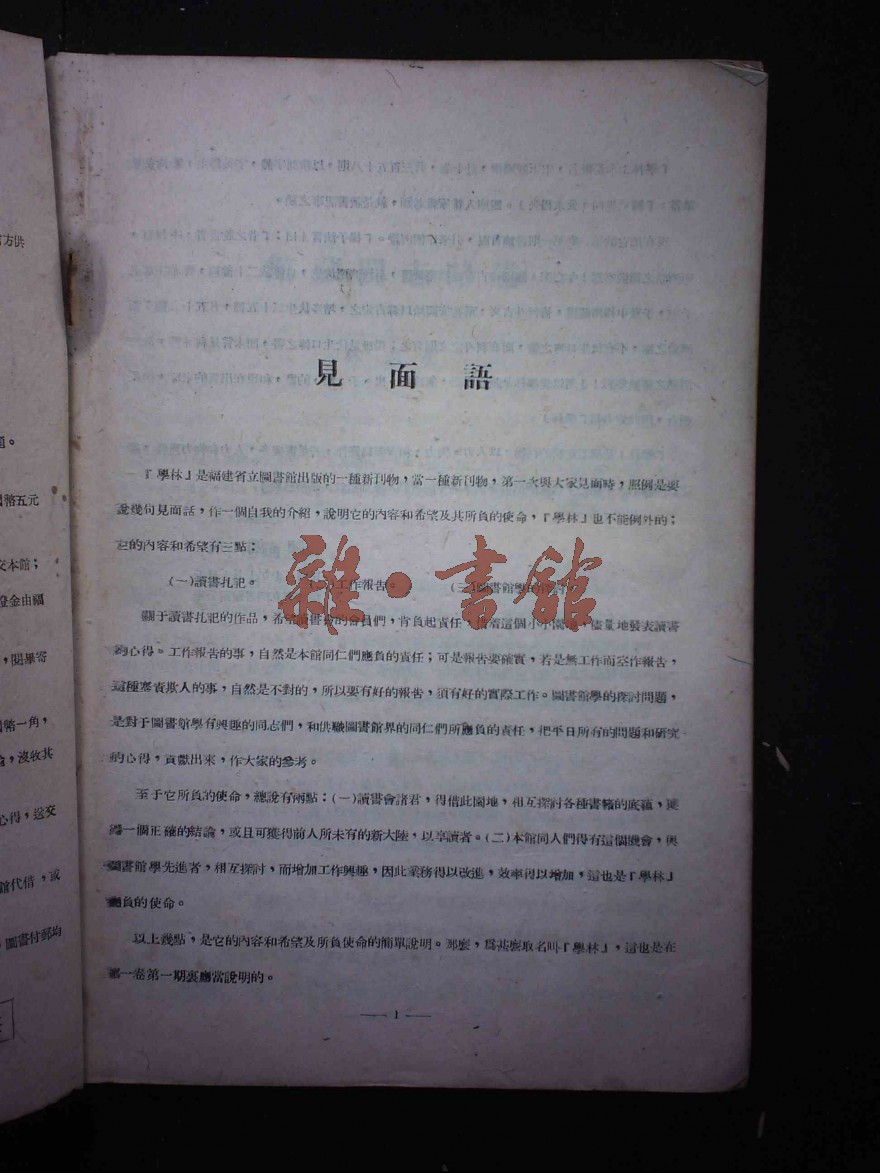 見面語
『學林』是福建省立圖書館出版的一種新刊物，當一種新刊物，第一次與大家見面時，照例是要
說幾句見面話，作一個自我的介紹，說明它的內容和希望及其所負的使命，『學林』也不能例外的；
它的內容和希望有三點：
(一)讀書扎記。 (二)工作報告。 (三)圖書館學的
關于讀書扎記的作品，希望讀書會的會員們，肯負起責任，借着這個小小園地，儘量地發表讀書
的心得。工作報告的事，自然是本館同仁們應負的責任；可是報告要確實，若是無工作而空作報告，
這種塞責欺人的事，自然是不對的，所以要有好的報告，須有好的實際工作。圖書館學的探討問題，
是對于圖書館學有興趣的同志們，和供職圖書館界的同仁們所應負的責任，把平日所有的問題和研究
的心得，貢獻出來，作大家的參考。
至于它所負的使命，總說有兩點：(一)讀書會諸君，得借此園地，相互探討各種書籍的底蘊，
一個正確的結論，或且可獲得前人所未有的新大陸，以享讀者。(二)本館同人們得有這個機會，與
圖書館學先進者，相互探討，而增加工作興趣，因此業務得以改進，效率得以增加，這也是『學林』
負的使命。
以上幾點，是它的內容和希望及所負使命的簡單說明。那麼，爲甚麼取名叫『學林』，這也是在
第一卷第一期裏應當說明的。
— 1 —
雜·書館
方供
。
國幣五元
交本館；
證金由福
，閱畢寄
國幣一角，
，沒收其
心得，送交
館代借，或
圖書付郵均